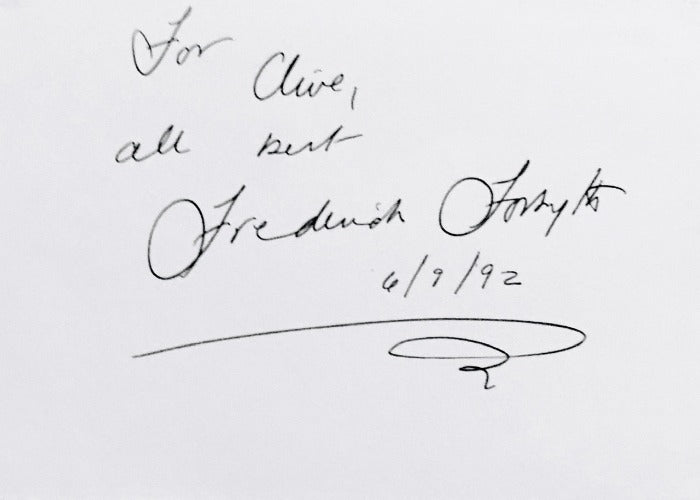 For
Clive,
all best
Frederick Forsyth
6/9/92